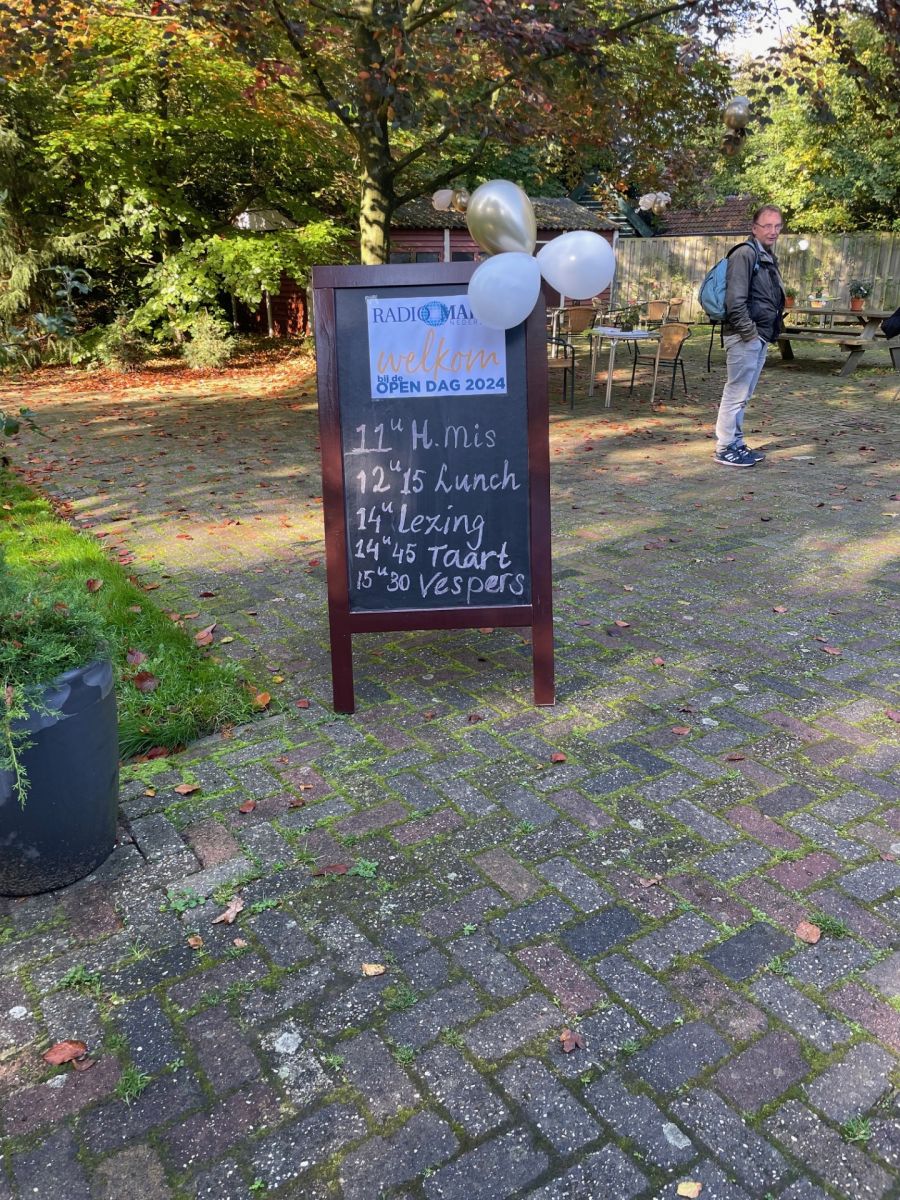 RADIO MA
NEDER
welkom
bij de
OPEN DAG 2024
11u H. Mis
12u15 Lunch
14u Lezing
14u45 Taart
15u30 Vespers